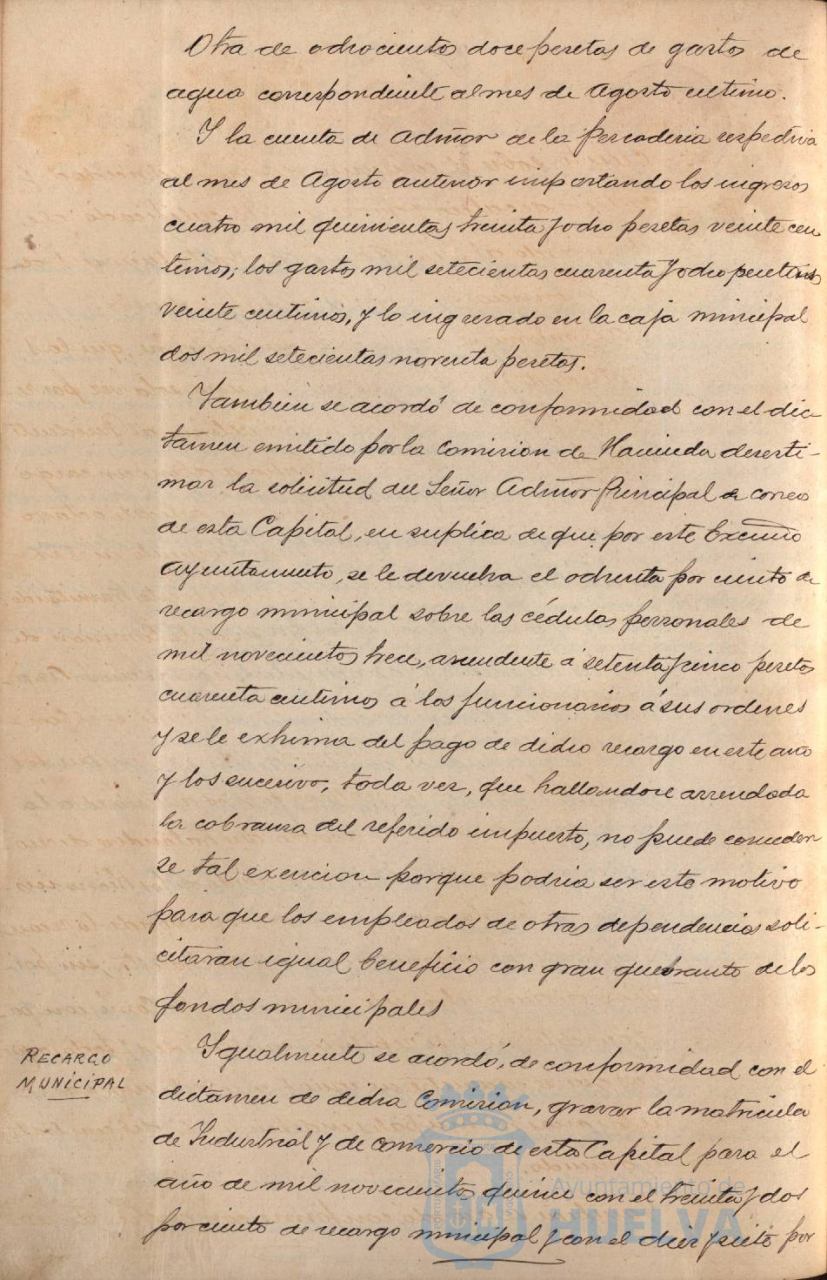 Otra de ochocientos doce pesetas de gastos de
agua correspondiente al mes de Agosto ultimo.
Y la cuenta de Admñor de la pescaderia respectiva
al mes de Agosto anterior importando los ingresos
cuatro mil quinientas treinta y ocho pesetas veinte cen
timos; los gastos mil setecientas cuarenta y ocho pesetas
veinte centimos, y lo ingresado en la caja municipal
dos mil setecientas noventa pesetas.
Tambien se acordó de conformidad con el dic
tamen emitido por la Comision de Hacienda desesti-
mar la solicitud del Señor Admñor Principal de correos
de esta Capital, en suplica de que por este Excmo
Ayuntamiento, se le devuelva el ochenta por ciento de
recargo municipal sobre las cédulas personales de
mil novecientos trece, ascendente á setenta y cinco pesetas
cuarenta centimos á los funcionarios á sus ordenes
y se le exhima del pago de dicho recargo en este año
y los sucesivo, toda vez, que hallandose arrendada
la cobranza del referido impuesto, no puede conceder
se tal exencion porque podria ser este motivo
para que los empleados de otras dependencias soli-
citaran igual beneficio con gran quebranto de los
fondos municipales
RECARGO
MUNICIPAL
Igualmente se acordó, de conformidad con el
dictamen de dicha Comision, gravar la matricula
de Industrial y de comercio de esta Capital para el
año de mil novecientos quince con el treinta y dos
por ciento de recargo municipal y con el diez y siete por
Ayuntamiento de
HUELVA